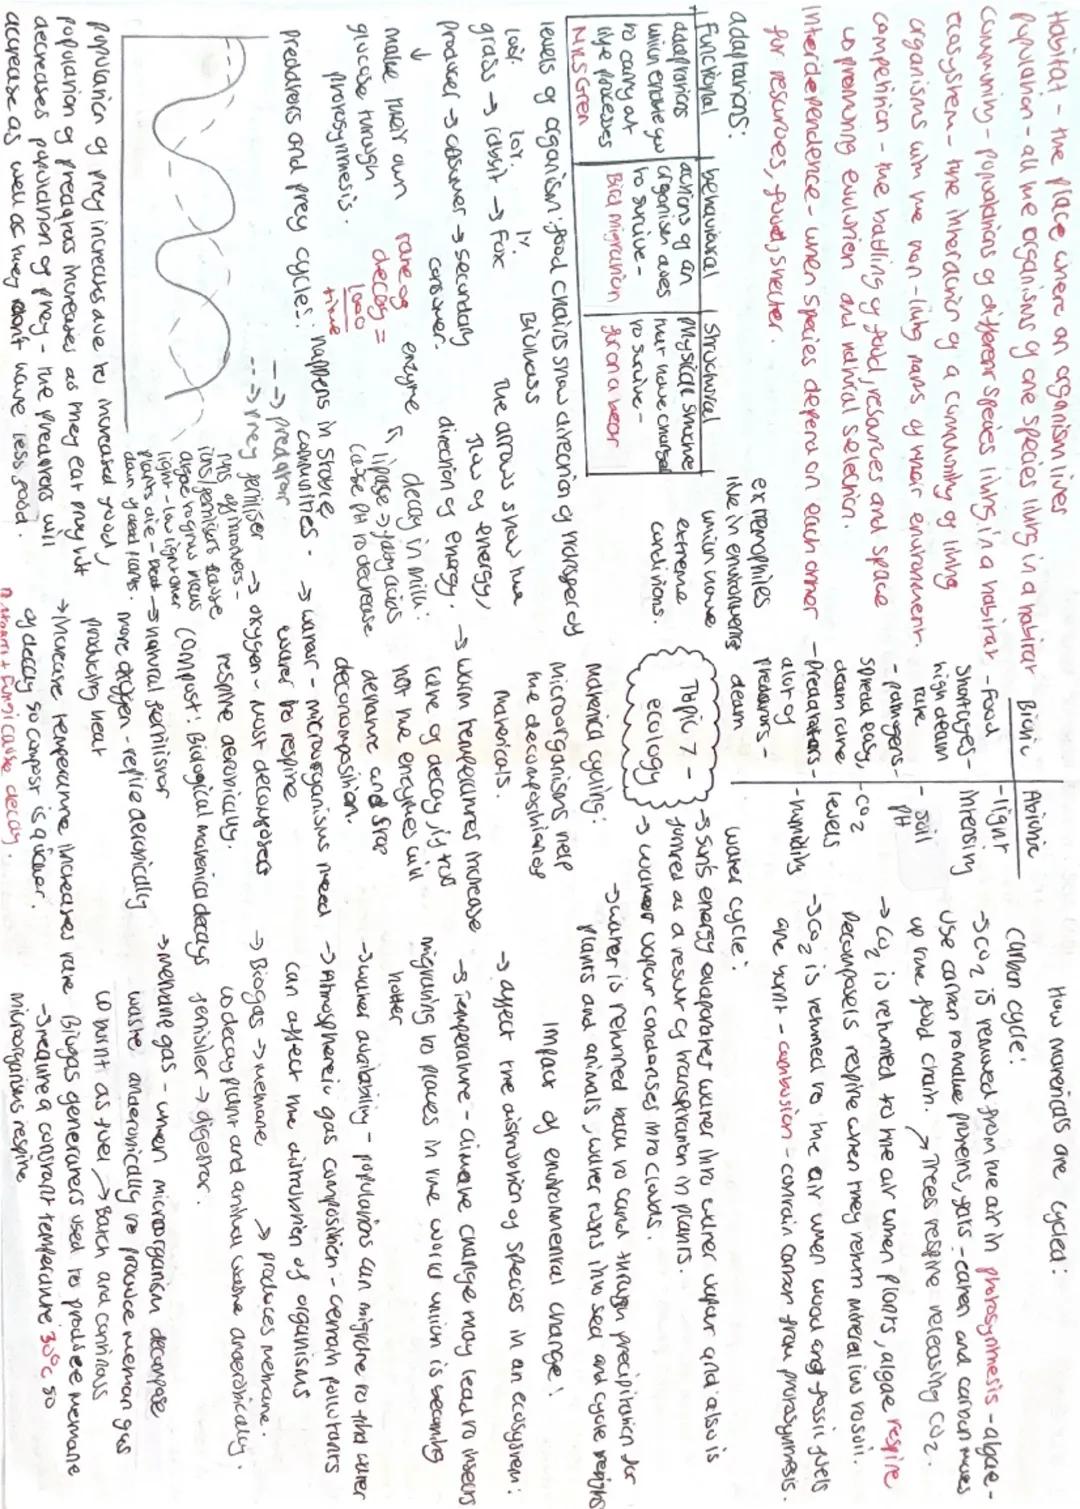 Habitat - the place where an organism lives
Population - all the organisms of one species living in a habitat
Community - populations of different species living in a habitat.
Ecosystem - the interaction of a community of living
organisms with the non-living parts of their environment.
Competition - the battling of food, resources and space
Interdependence - when species depend on each other
for resources, food, shelter.
adaptations:
Functional
behavioural
Structural
adaptations
which enable you
to carry out
life processes
Mrs Green
actions of an
organism
to survive -
Bird migration
physical structure
that have changed
to survive -
extremophiles
live in environments
which have
extreme
conditions.
levels of organism: food chains show direction of
grass → rabbit → Fox
Biomass
producer → consumer → secondary
consumer.
↓
make their own
glucose through
photosynthesis.
The arrows show the
flow of energy,
direction of energy.
rate of
decay =
1000
time
enzyme
decay in milk:
lipase → fatty acids
cause PH to decrease
Predators and prey cycles: happens in stable
communities.
--→ predator
--→ prey
Population of prey increases due to increased food,
population of predators increases as they eat prey but
decreases population of prey - the predators will
decrease as well as they don't have less food.
light - low light other
plants die -
Biotic
Abiotic
- Food
Shortages -
high death
rate
- pathogens -
spread easy,
death rate
- predators -
alot of
predators -
death
- light
intensity
- soil
PH
- CO2
levels
- humidity
Topic 7 -
ecology
material cycling:
Microorganisms help
the decomposition of
materials.
→ warm temperatures increase
rate of decay, if too
hot the enzymes will
denature and stop
decomposition.
→ water - microorganisms need
water to respire
→ oxygen - most decomposers
respire aerobically.
Compost: Biological material decays
→ natural fertiliser
more oxygen - respire aerobically
producing heat
→ increase temperature increases rate
of decay so compost is quicker.
How materials are cycled:
carbon cycle:
→ CO2 is removed from the air in photosynthesis - algae -
Use carbon to make proteins, fats - eaten and carbon moves
up the food chain.
→ Trees respire releasing CO2.
→ CO2 is returned to the air when plants, algae respire
Decomposers respire when they return mineral ions to soil.
→ CO2 is returned to the air when wood and fossil fuels
are burnt - combustion - contain carbon from photosynthesis.
water cycle:
→ Sun's energy evaporates water into water vapour and also is
formed as a result of transpiration in plants.
→ water vapour condenses into clouds.
→ water is returned back to land through precipitation for
plants and animals, water runs into sea and cycle begins
Impact of environmental change:
→ affect the distribution of species in an ecosystem:
→ Temperature - climate change may lead to insects
migrating to places in the world which is becoming
hotter
→ water availability - populations can migrate to find water
→ Atmospheric gas composition - certain pollutants
can affect the distribution of organisms
→ Biogas → methane
→ produces methane.
to decay plant and animal waste anaerobically.
fertiliser → digestor.
→ methane gas - when microorganism decompose
waste anaerobically to produce methan gas
to burnt as fuel → Batch and continous
Biogas generators used to produce methane
→ require a constant temperature 30°C so
microorganisms respire